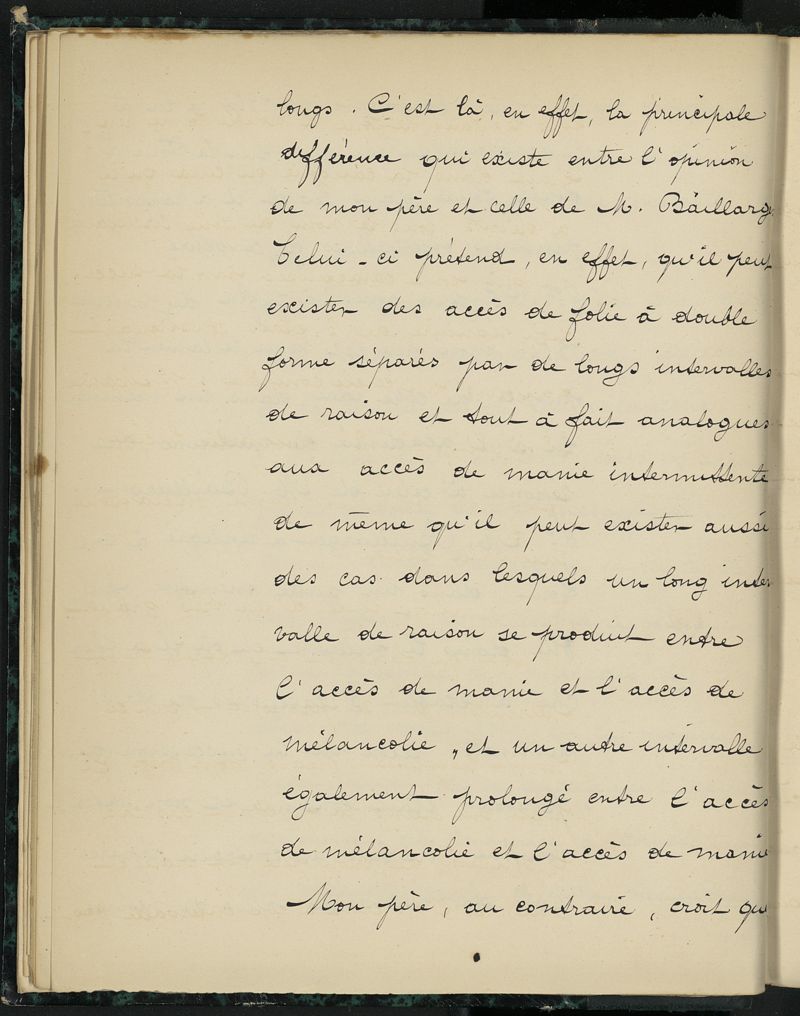 longs. C'est là, en effet, la principale
différence qui existe entre l'opinion
de mon père et celle de M. Baillarg
Celui-ci prétend, en effet, qu'il peut
exister des accès de folie à double
forme séparés par de longs intervalles
de raison et tout à fait analogues
aux accès de manie intermittente
de même qu'il peut exister aussi
des cas dans lesquels un long inter
valle de raison se produit entre
l'accès de manie et l'accès de
mélancolie, et un autre intervalle
également prolongé entre l'accès
de mélancolie et l'accès de manie
Mon père, au contraire, croit qu